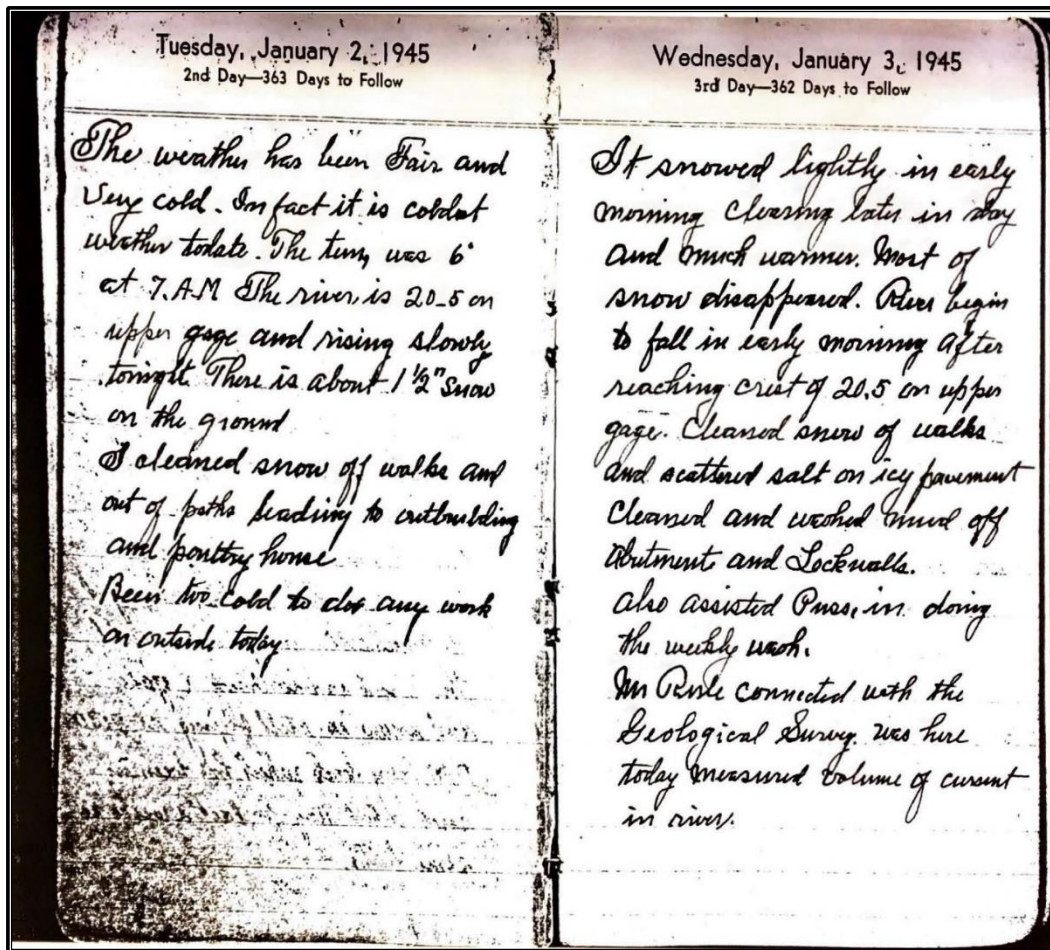 Tuesday, January 2, 1945
2nd Day—363 Days to Follow
The weather has been Fair and
Very cold. In fact it is coldest
weather todate. The tem, was 6°
at 7. A.M The river is 20-5 on
upper gage and rising slowly
tonight. There is about 1 1/2" snow
on the ground
I cleaned snow off walks and
out of paths leading to outbuilding
and poultry house
Been too cold to do any work
on outside today
Wednesday, January 3, 1945
3rd Day—362 Days to Follow
It snowed lightly in early
morning clearing later in day
and much warmer. Most of
snow disappeared. River begin
to fall in early morning after
reaching crest of 20.5 on upper
gage. Cleaned snow of walks
and scattered salt on icy pavement
Cleaned and washed mud off
Abutments and Lockwalls.
also assisted Puss, in doing
the weekly wash.
Mr connected with the
Geological Survey. was here
today measured volume of current
in river.